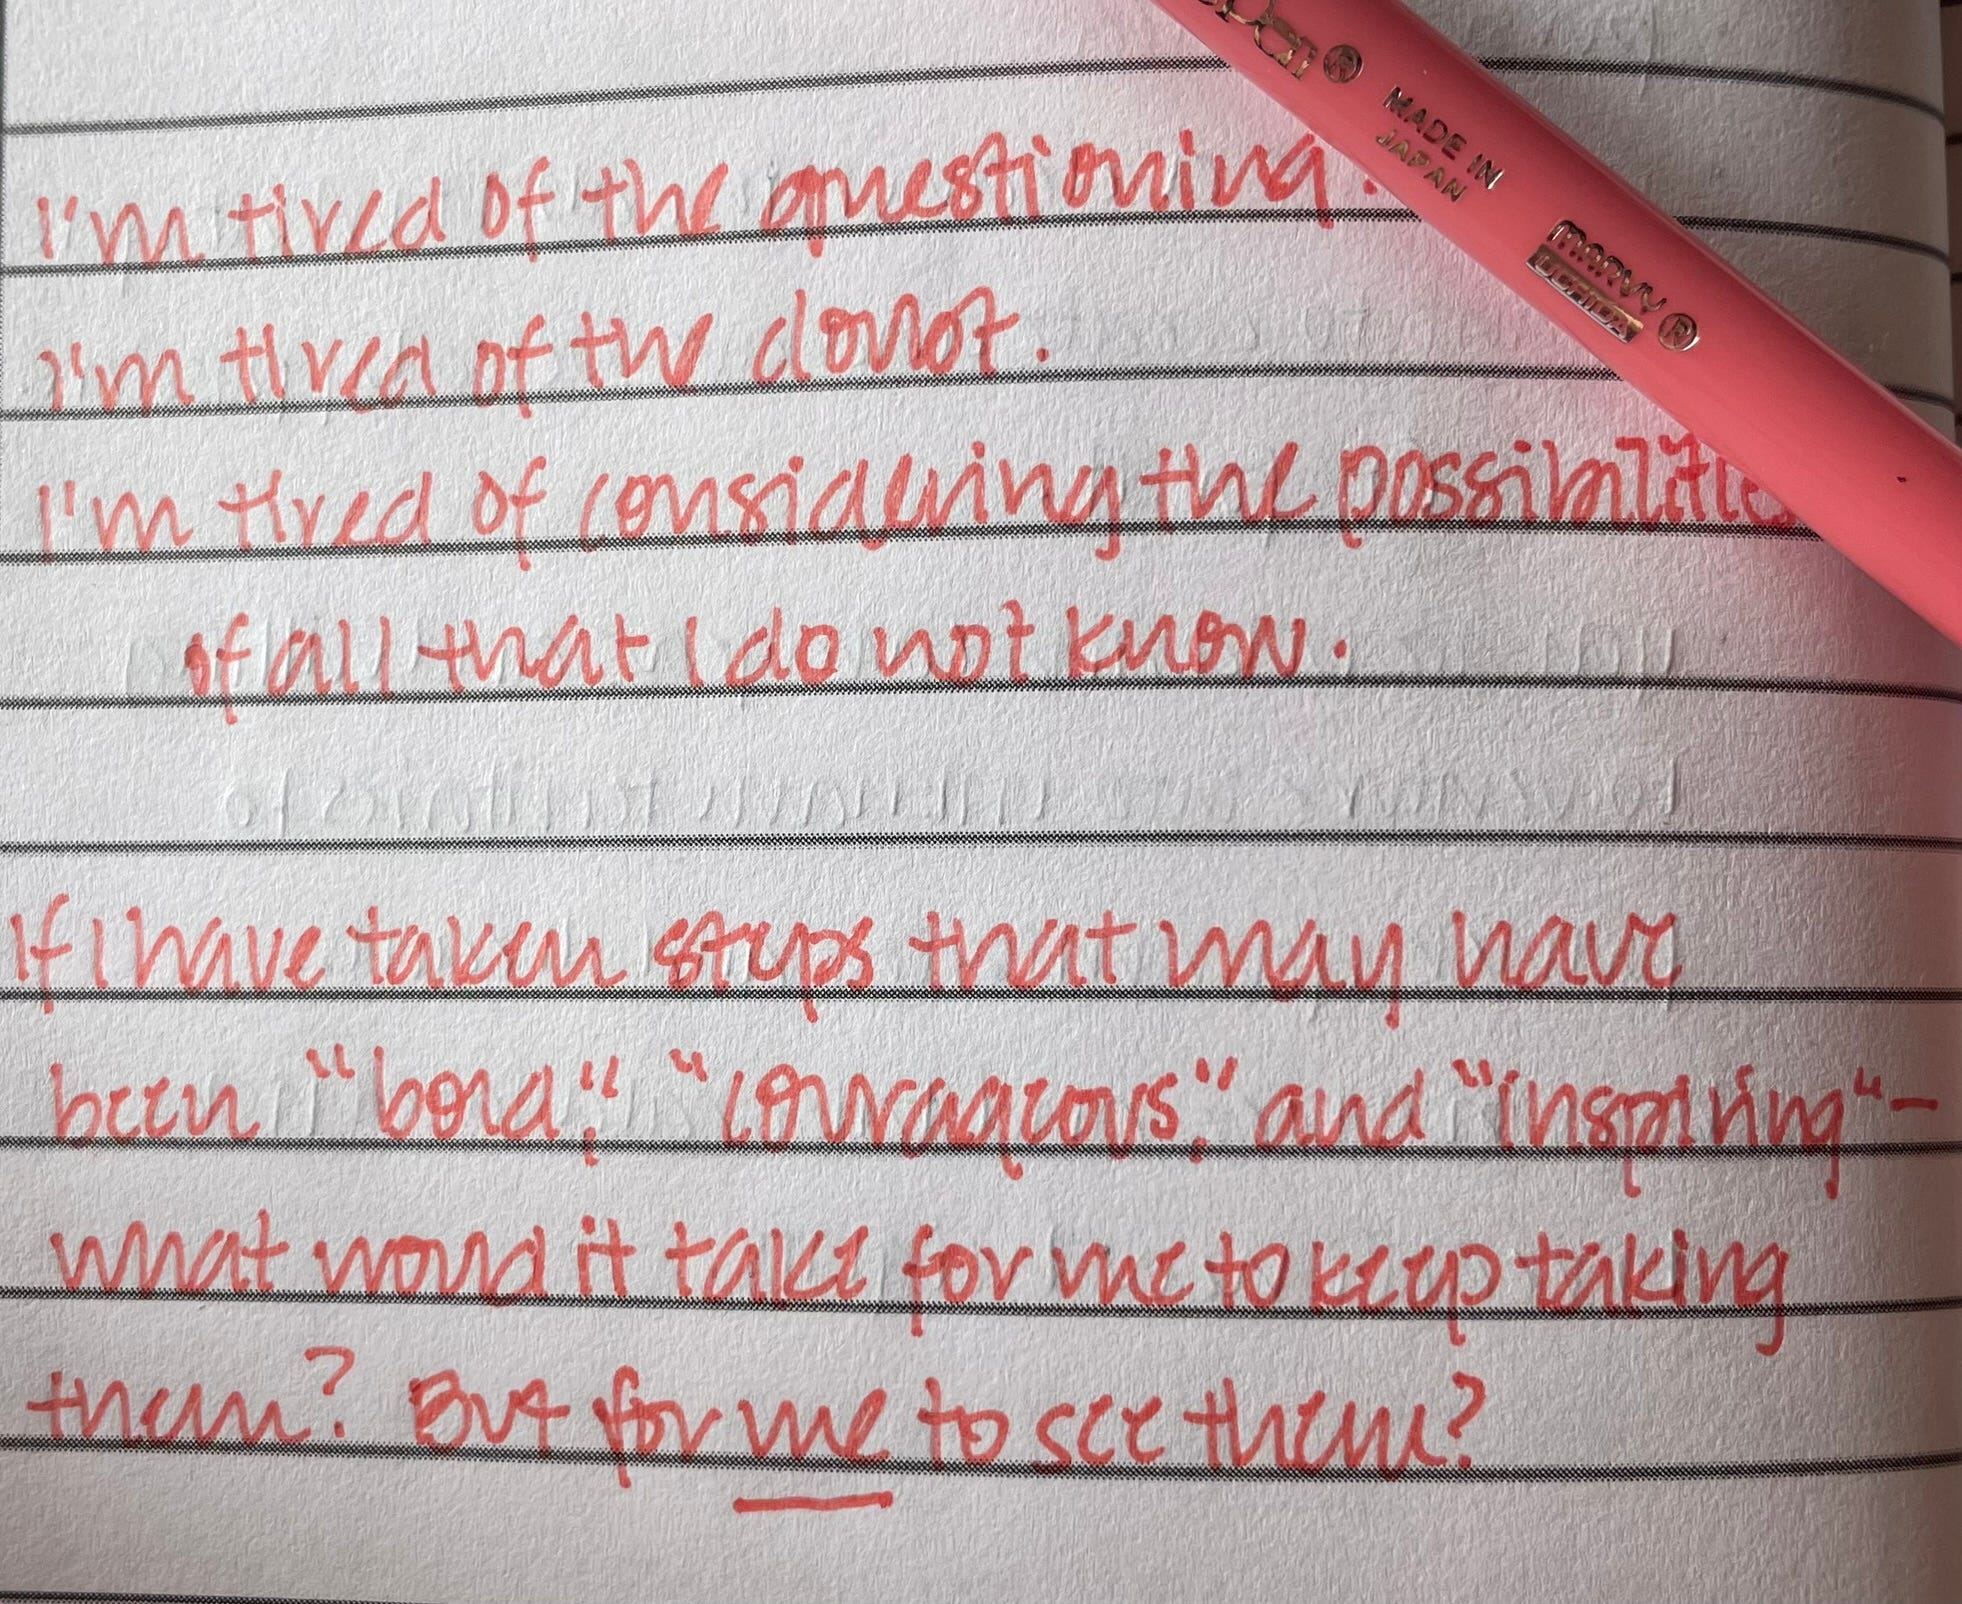 I'm tired of the questioning.
I'm tired of the doubt.
I'm tired of considering the possibilities
of all that I do not know.
If I have taken steps that may have
been "bold," "courageous," and "inspiring" –
what would it take for me to keep taking
them? But for me to see them?
MADE IN
JAPAN
MARVY®
UCHIDA